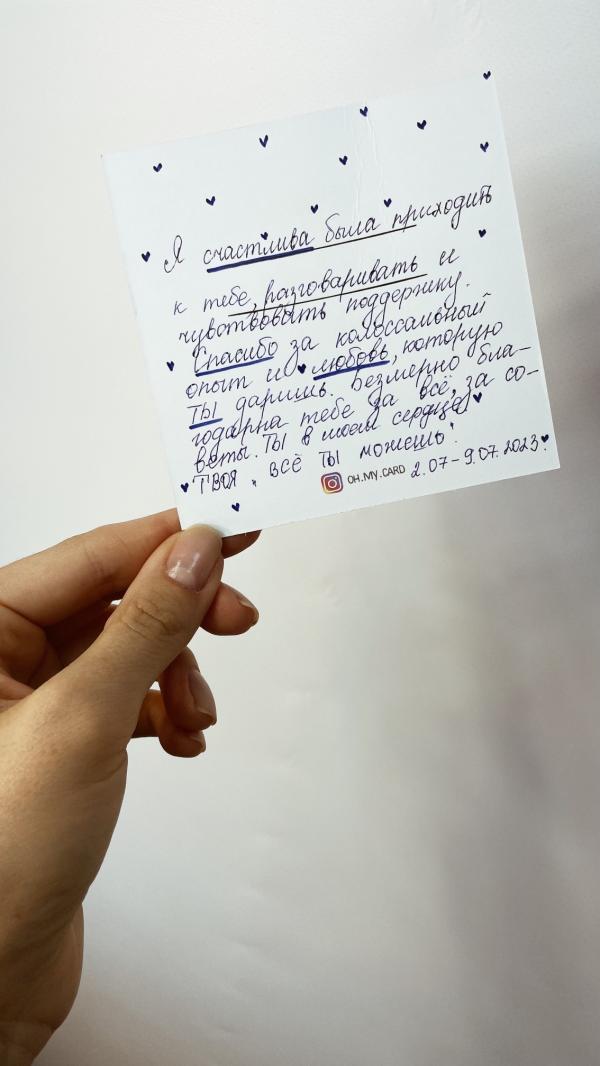 Я счастлива была приходить
к тебе, разговаривать и
чувствовать поддержку.
Спасибо за колоссальный
опыт и любовь, которую
ТЫ даришь. Безмерно бла-
годарна тебе за всё, за со-
веты. ТЫ в моем сердце
ТВОЯ "ВСЁ ТЫ можешь".
OH.MY.CARD 2.07-9.07.2023.